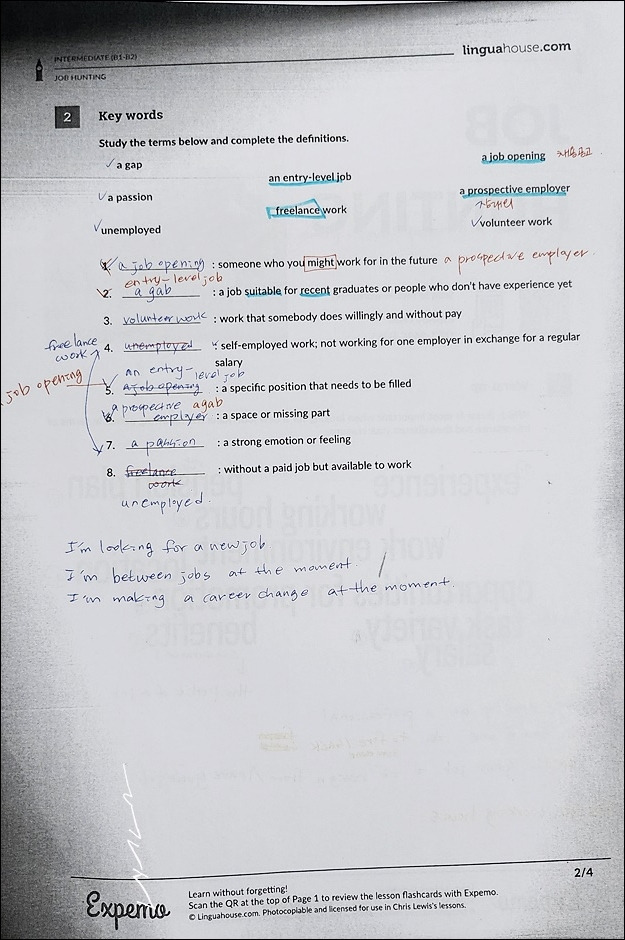 linguahouse.com
INTERMEDIATE (B1-B2)
JOB HUNTING
2 Key words
Study the terms below and complete the definitions.
✓ a gap
an entry-level job
a job opening 채용공고
✓ a passion
freelance work
a prospective employer
✓ unemployed
✓ volunteer work
1. a job opening : someone who you might work for in the future a prospective employer.
entry-level job
2. a gab : a job suitable for recent graduates or people who don't have experience yet
3. volunteer work : work that somebody does willingly and without pay
freelance work
4. unemployed : self-employed work; not working for one employer in exchange for a regular
salary
an entry-level job
job opening
5. a job opening : a specific position that needs to be filled
a prospective agab
6. employer : a space or missing part
7. a passion : a strong emotion or feeling
8. freelance work : without a paid job but available to work
unemployed.
I'm looking for a new job.
I'm between jobs at the moment.
I'm making a career change at the moment.
2/4
Expemo
Learn without forgetting!
Scan the QR at the top of Page 1 to review the lesson flashcards with Expemo.
© Linguahouse.com. Photocopiable and licensed for use in Chris Lewis's lessons.